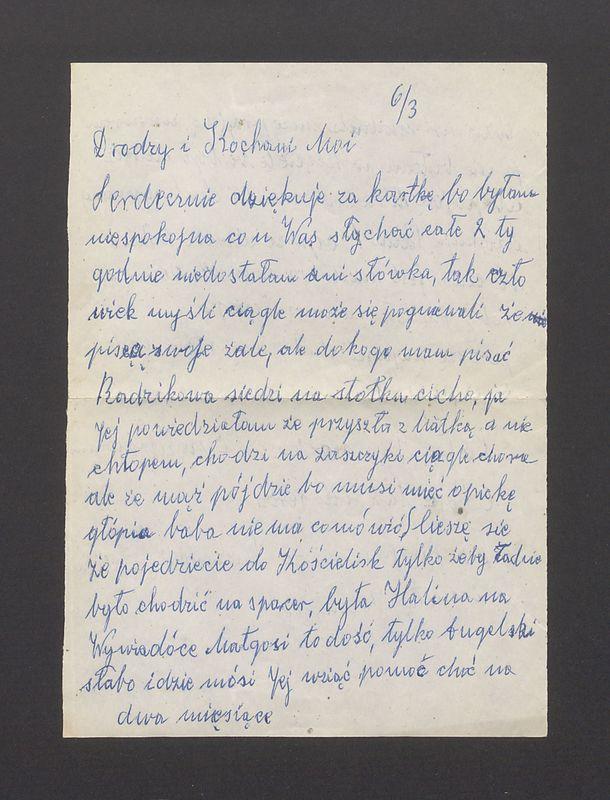 6/3
Drodzy i Kochani Moi
Serdecznie dziękuje za kartkę bo byłam
niespokojna co u Was słychać całe 2 ty
godnie niedostałam ani słówka, tak czło
wiek myśli ciągle może się pogniewali że
piszą swoje żale, ale do kogo mam pisać
Radzikowa siedzi na stołku cicho, ja
Jej powiedziałam że przyszła z
chłopem, chodzi na zaszczyki ciągle chora
ale że mąż pójdzie bo musi mieć opiekę
głópia baba niema comówić) Cieszę się
że pojedziecie do Kościelisk tylko żeby ładnie
było chodzić na spacer, była Halina na
Wywiadóce Małgosi to dość, tylko Angelski
słabo idzie mósi Jej wziąć pomoc choć na
dwa miesiące